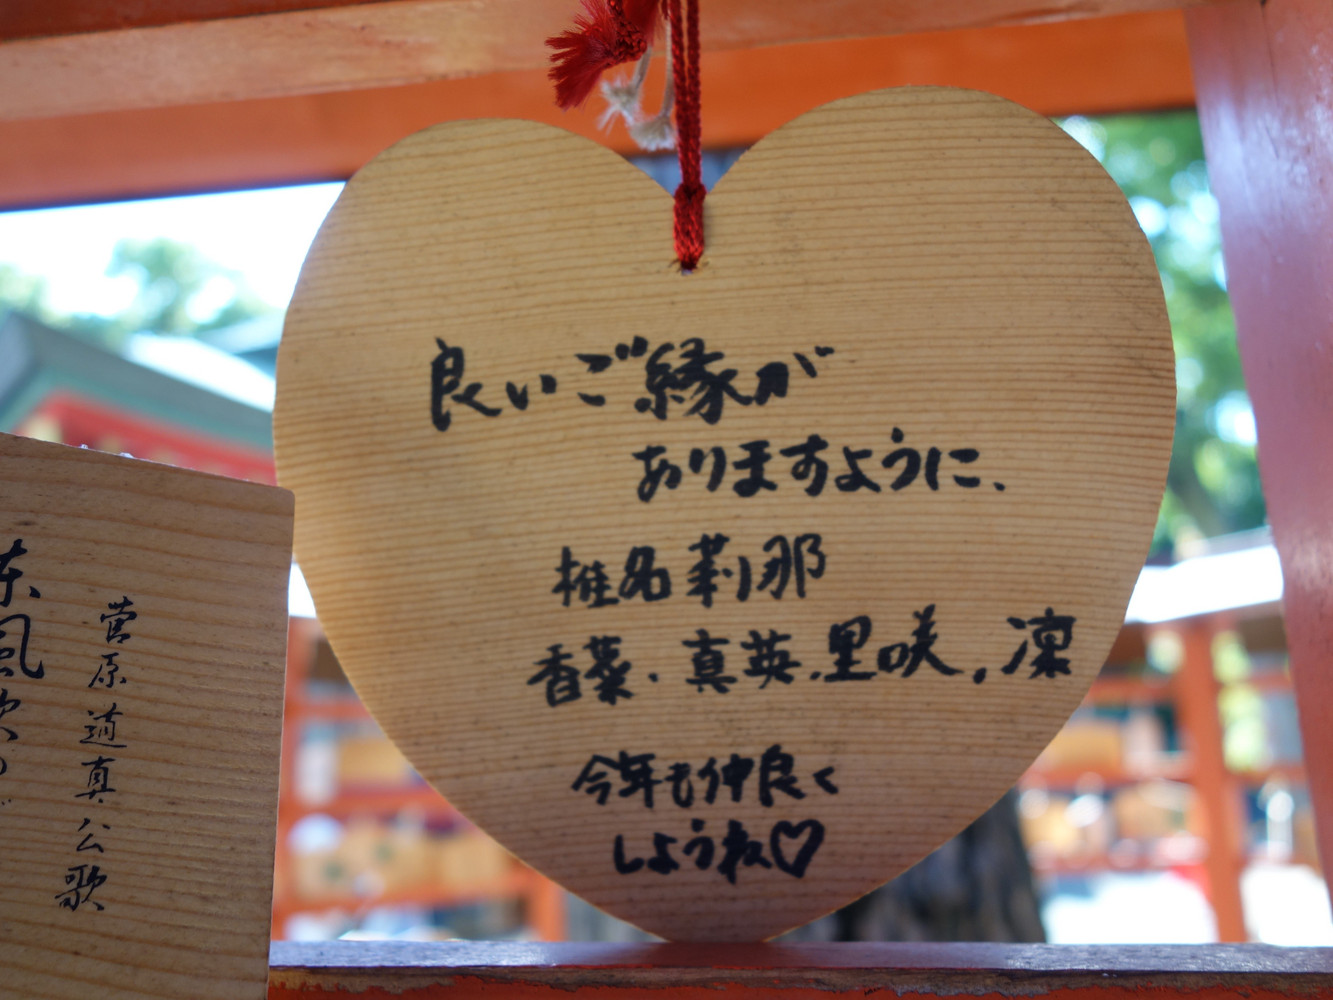 良いご縁が
ありますように、
椎名莉那
香菜・真英・里咲・凜
今年も仲良く
しようね♡
東風吹
菅原道真公歌